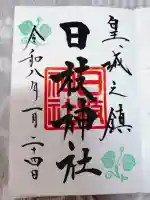 皇城之鎮
日枝神社
令和八年一月二十四日